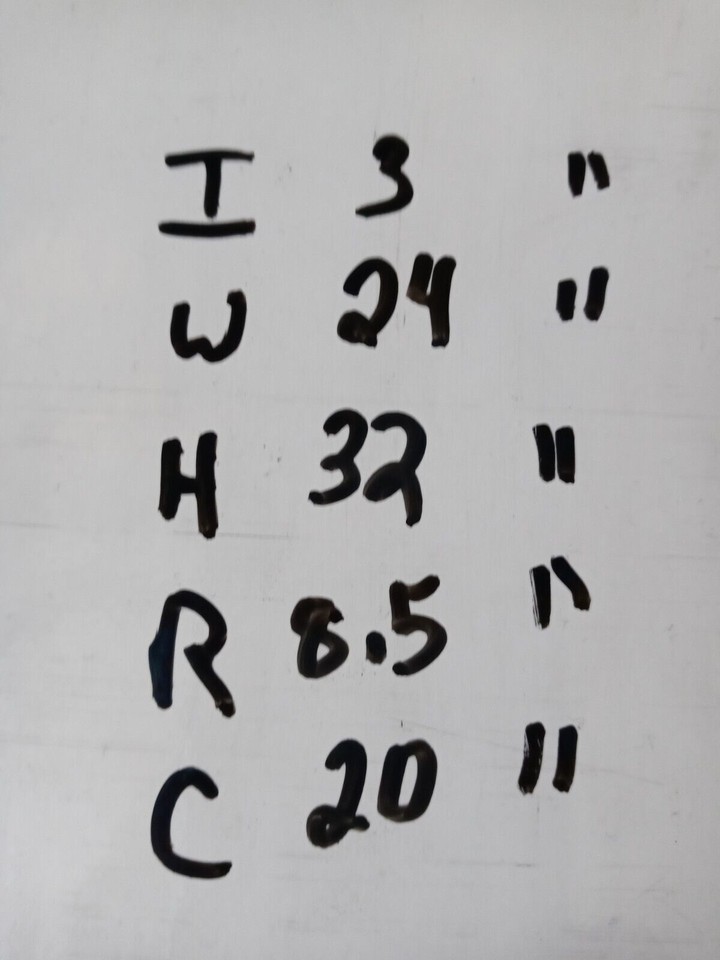 I 3 "
W 24 "
H 32 "
R 8.5 "
C 20 "